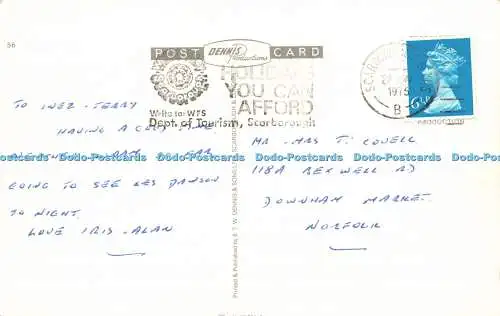 56
POST CARD
DENNIS
Productions
HOLIDAYS
YOU CAN
AFFORD
Write to: WTS
Dept. of Tourism, Scarborough
SCARBOROUGH
1975
B
6½P
TO INEZ - TERRY
HAVING A
GOING TO SEE LES DAWSON
TO NIGHT
LOVE IRIS - ALAN
MR - MRS T. COVELL
118A BEXWELL RD
DOWNHAM MARKET
NORFOLK
Printed & Published by E. T. W. DENNIS & SONS
Dodo-Postcards Dodo-Postcards Dodo-Postcards Dodo-Postcards Dodo-Postcards